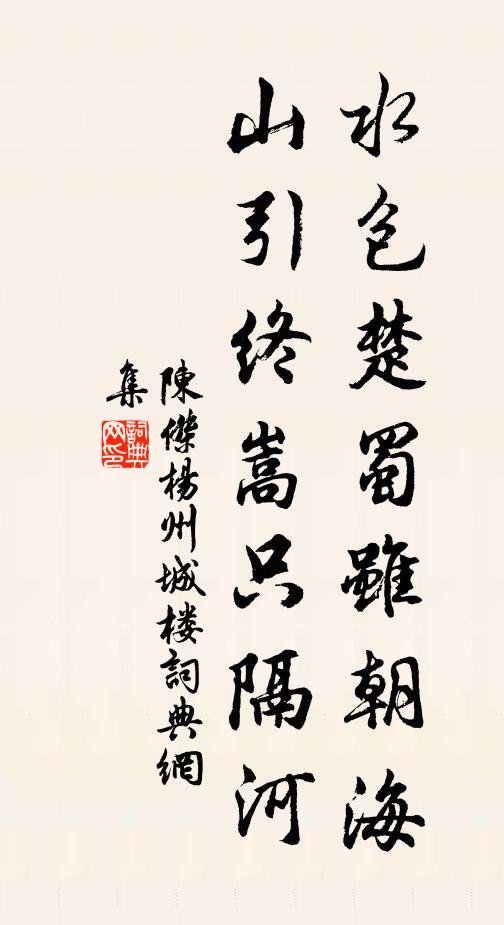 水包楚蜀雖朝海
山引終嵩只隔河
陳傑楊州城楼詞典網
集
詞典
网印